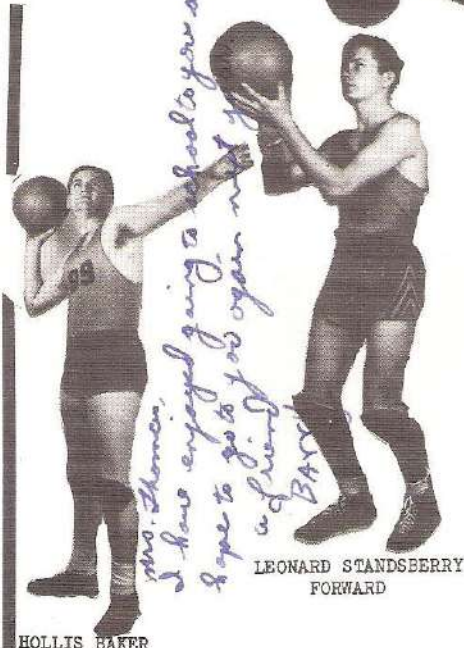 Mrs. Thomas,
I have enjoyed going to school to you
hope to go to you again next
a friend
LEONARD STANDSBERRY
FORWARD
HOLLIS BAKER